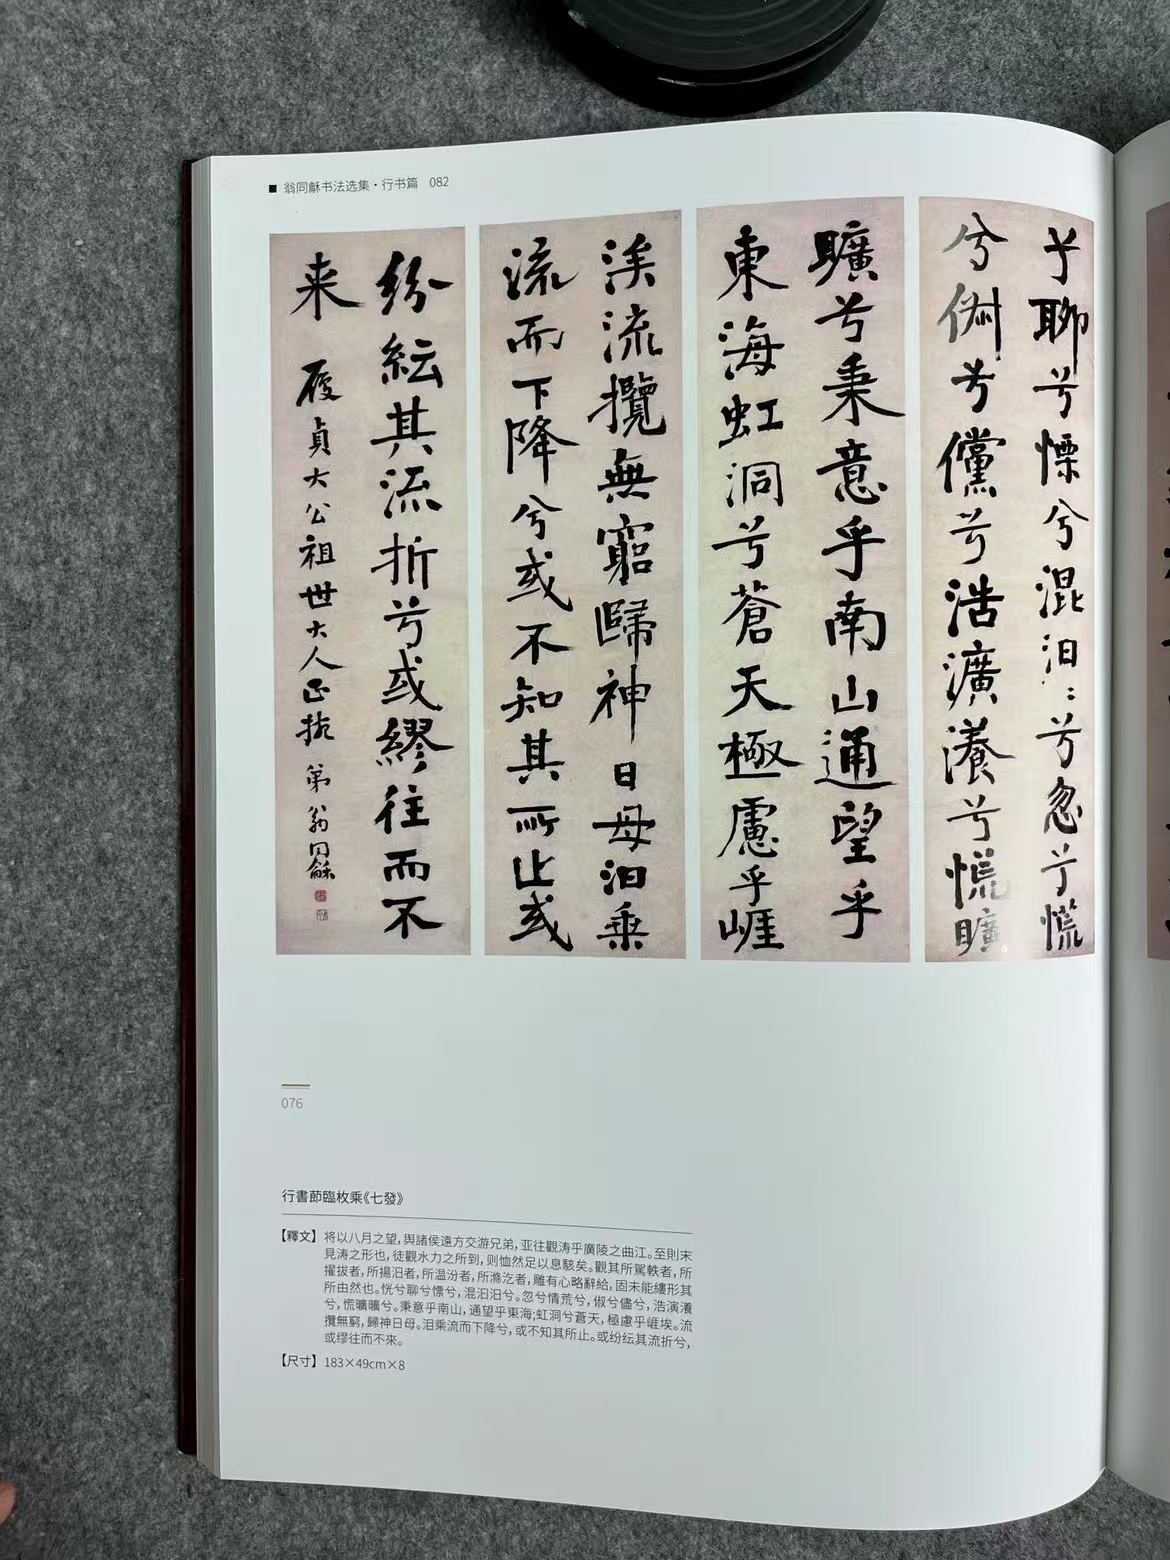 ■ 翁同龢书法选集·行书篇 082
兮聊兮慄兮混汩〻兮忽兮慌
兮俶兮儻兮浩瀇瀁兮慌曠
曠兮秉意乎南山通望乎
東海虹洞兮蒼天極慮乎崕
涘流攬無窮歸神日母汩乘
流而下降兮或不知其所止或
紛紜其流折兮或繆往而不
来
履貞大公祖世大人正捥 弟翁同龢
076
行書節臨枚乘《七發》
【釋文】将以八月之望，與諸侯遠方交游兄弟，亚往觀涛乎廣陵之曲江。至則未
見涛之形也，徒觀水力之所到，则恤然足以息駭矣。觀其所駕軼者，所
擢拔者，所揚汩者，所温汾者，所滌汔者，雕有心略辭給，固未能縷形其
所由然也。恍兮聊兮慄兮，混汩汩兮。忽兮情荒兮，俶兮儘兮，浩演瀁
兮，慌曠曠兮。秉意乎南山，通望乎東海；虹洞兮蒼天，極慮乎崕埃。流
攬無窮，歸神日母。汩乘流而下降兮，或不知其所止。或纷纭其流折兮，
或缪往而不來。
【尺寸】183×49cm×8